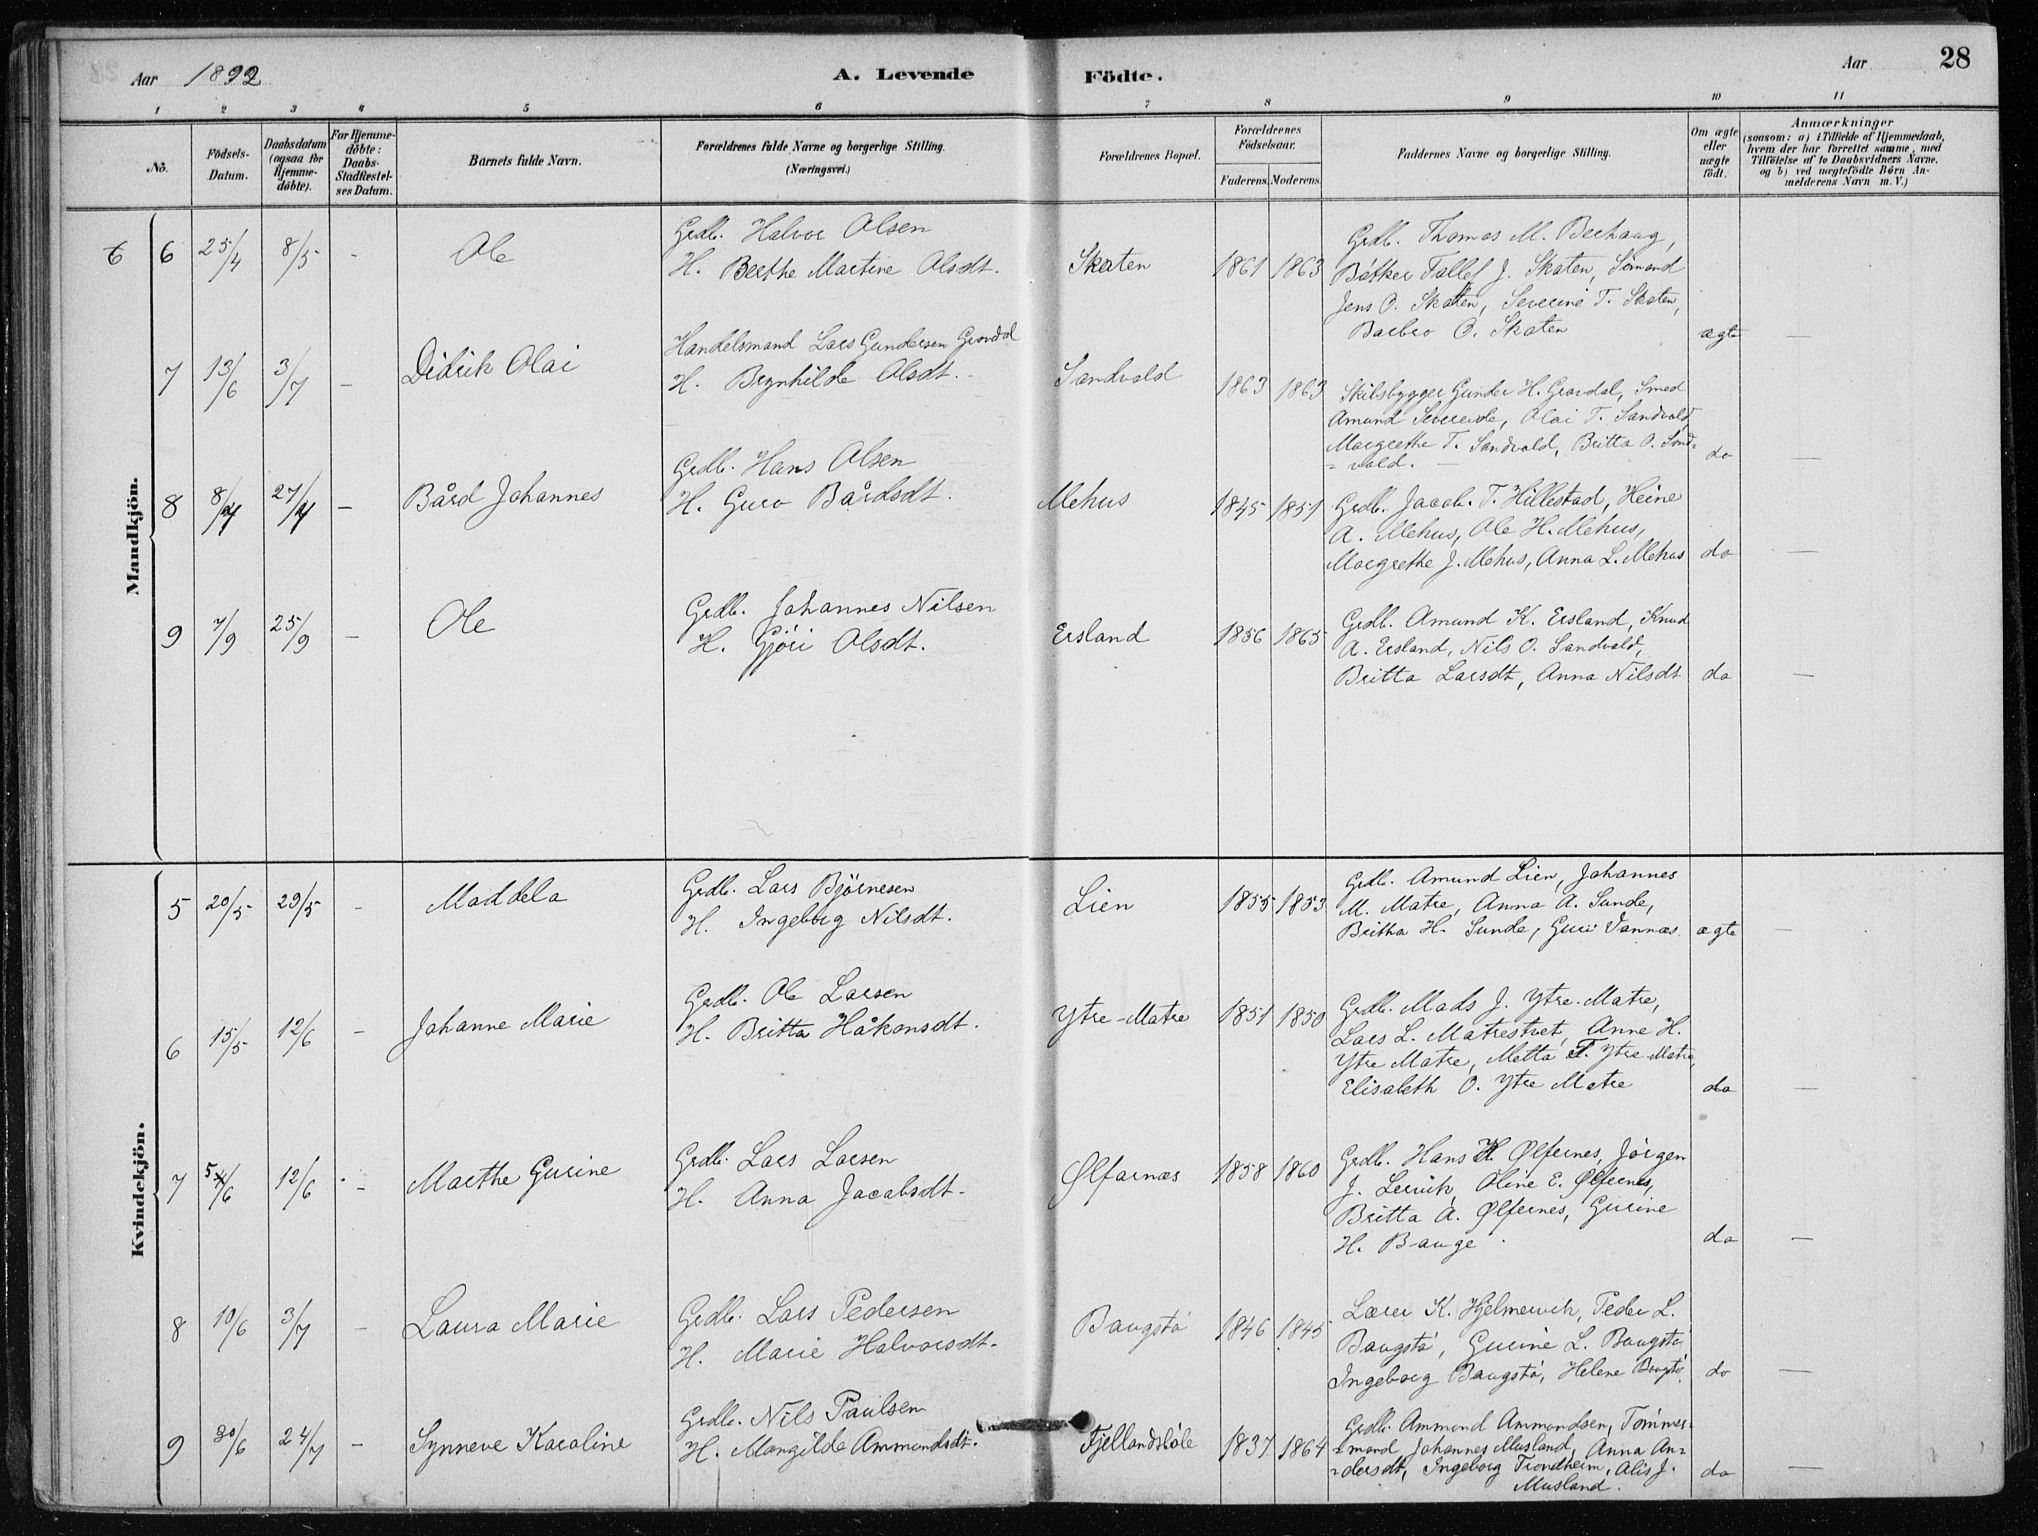 Aar 1892 A. Levende Födte. Aar 28
1 2 3 4 5 6 7 8 9 10 11
No.
Födsels-Datum.
Daabsdatum (ogsaa for Hjemme-døbte).
For Hjemme-døbte: Daabs-Stadfæstel-ses Datum.
Barnets fulde Navn.
Forældrenes fulde Navne og borgerlige Stilling. (Næringsvei.)
Forældrenes Bopæl.
Forældrenes Födselsaar.
Faderens. Moderens.
Faddernes Navne og borgerlige Stilling.
Om ægte eller uægte födt.
Anmærkninger
(saasom: a) i Tilfælde af Hjemmedaab,
hvem der har forrettet samme, med
Tilföielse af to Daabsvidners Navne.
og b) ved uægtefödte Börn An-
melderens Navn m. V.)
Mandkjön.
6 25/4 8/5 - Ole
Grdb. Halvor Olsen
H. Berthe Martine Olsdt.
Skaten 1861 1863
Grdb. Thomas M. Berhaug,
Bøtker Tallef J. Skaten, Sømand
Jens O. Skaten, Severine T. Skaten,
Barbro O. Skaten
ægte —
7 13/6 3/7 - Didrik Olai
Handelsmand Lars Gundersen Grovdal
H. Brynhilde Olsdt.
Sandvold 1863 1863
Skibsbygger Gunder H. Grovdal, Smed
Amund Severeide, Olai T. Sandvold,
Margrethe T. Sandvold, Britta O. Sand-
=vold. —
do —
8 8/4 27/4 - Bård Johannes
Grdb. Hans Olsen
H. Guro Bårdsdt.
Mehus 1845 1851
Grdb. Jacob T. Hillestad, Heine
A. Mehus, Ole H. Mehus,
Margrethe J. Mehus, Anna L. Mehus
do —
9 7/9 25/9 - Ole
Grdb. Johannes Nilsen
H. Gjøri Olsdt.
Ersland 1856 1865
Grdb. Amund K. Ersland, Knud
A. Ersland, Nils O. Sandvold,
Britta Larsdt, Anna Nilsdt
do —
Kvindekjön.
5 20/5 29/5 - Maddela
Grdb. Lars Bjørnesen
H. Ingeborg Nilsdt.
Lien 1855 1853
Grdb. Amund Lien, Johannes
M. Matre, Anna A. Sunde,
Britha H. Sunde, Guri Vannæs
ægte —
6 15/5 12/6 - Johanne Marie
Grdb. Ole Larsen
H. Britta Håkonsdt.
Ytre-Matre 1851 1850
Grdb. Mads J. Ytre-Matre,
Lars L. Matrestvet, Anne H.
Ytre Matre, Metta T. Ytre-Matre,
Elisabeth O. Ytre Matre
do —
7 5/6 12/6 - Marthe Gurine
Grdb. Lars Larsen
H. Anna Jacobsdt.
Ølfarnæs 1858 1860
Grdb. Hans H. Ølfernes, Jørgen
J. Lervik, Oline E. Ølfernes,
Britta A. Ølfernes, Gurine
H. Bauge.
do —
8 10/6 3/7 - Laura Marie
Grdb. Lars Pedersen
H. Marie Halvorsdt.
Baugstø 1846 1845
Lærer K. Hjelmervik, Peder L.
Baugstø, Gurine L. Baugstø
Ingeborg Baugstø, Helene Baugstø.
do —
9 30/6 24/7 - Synneve Karoline
Grdb. Nils Paulsen
H. Mangilde Ammundsdt.
Fjellandsbøle 1837 1864
Grdb. Ammund Ammundsen, Tømmer-
=mand Johannes Musland, Anna An-
=dersdt, Ingeborg Trondheim, Alis J.
Musland.
do —